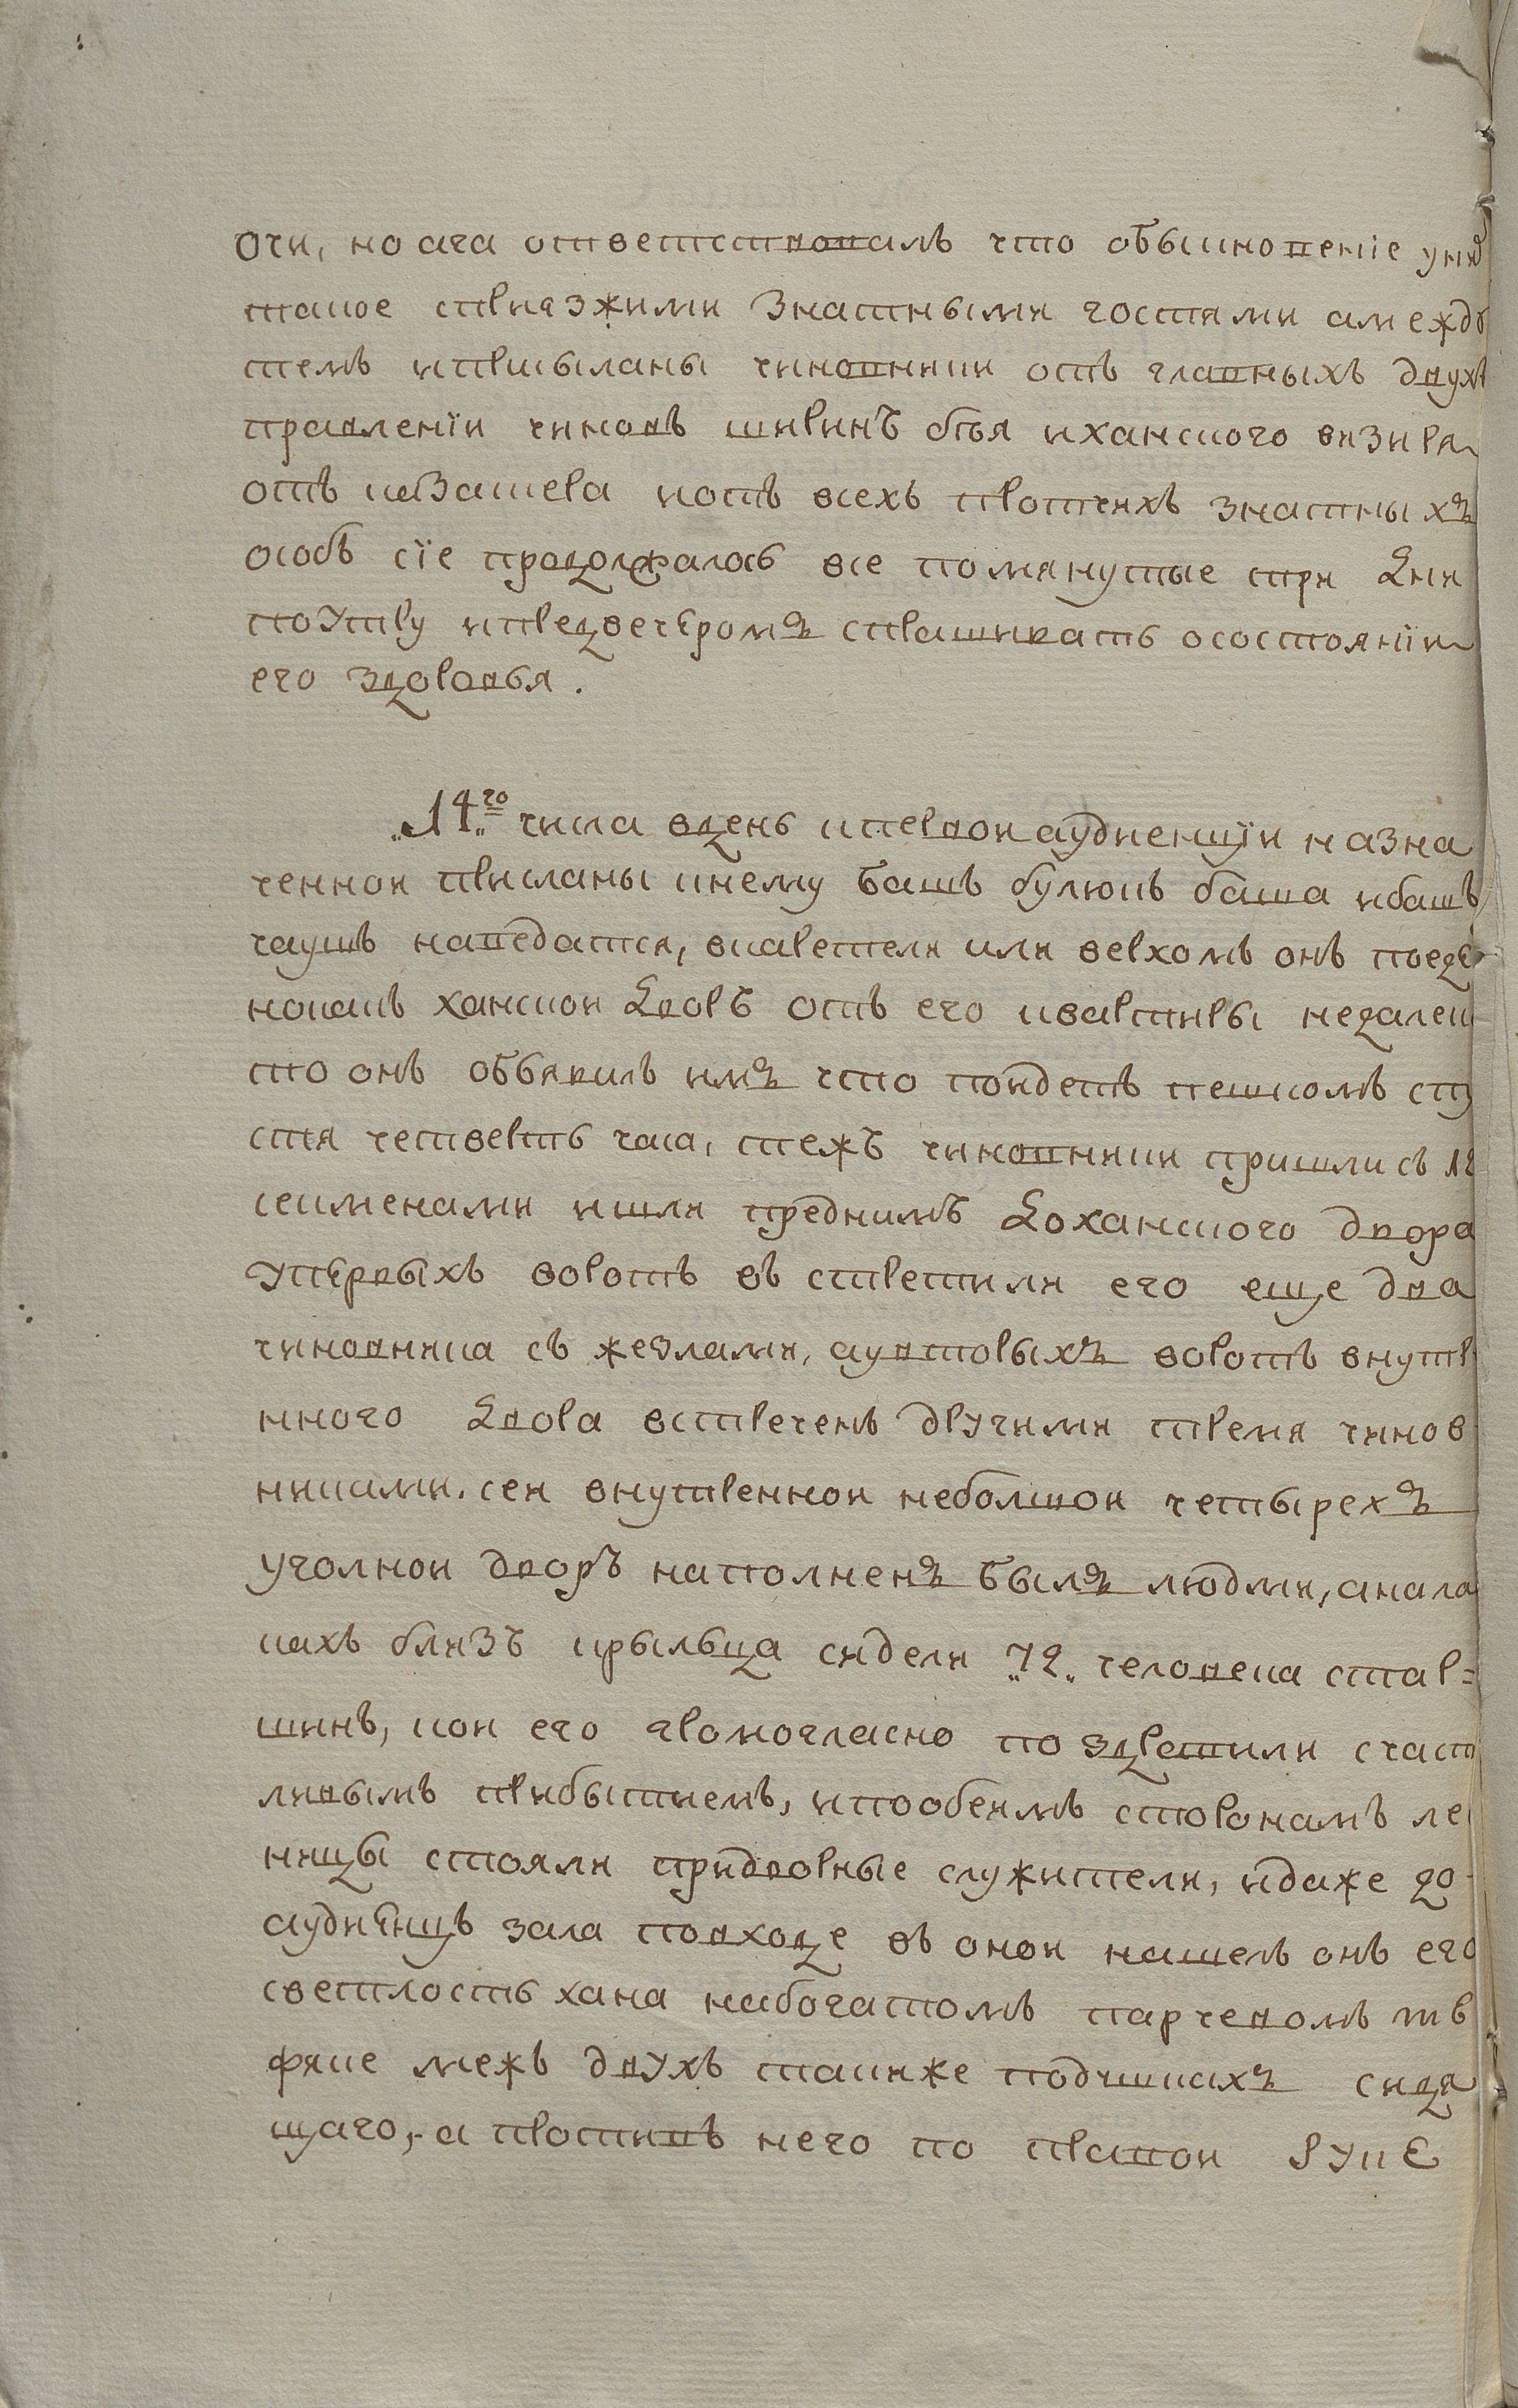 очи, но ага ответствовалъ что обыкновенiе у них
такое сприязжими знатными гостями амежду
темъ и присыланы чиновники отъ главныхъ двухъ
правленiи чиновъ ширинъ бея иханского визиря
отъ кабзашера иотъ всехъ протчихъ знатныхъ
особъ сiе продолжалось все помянутые три дни
поутру ипредвечеромъ спрашивать осостоянiи
его здоровья.
„14„го числа вдень кпервои аудиенцiи назна
ченнои присланы кнему башъ булюкъ баша ибашъ
чаушъ наведатся, вкаретели или верхомъ онъ поеде
нокакъ ханскои дворъ отъ его квартиры недалек
то онъ объявилъ имъ что поидетъ пешкомъ спу
стя четверть часа, тежъ чиновники пришли съ 12
сеименами ишли преднимъ доханского двора
упервыхъ воротъ въ стретили его еще два
чиновника съ жезлами, аувторыхъ воротъ внутре
нного двора встреченъ другими тремя чинов
никами. сеи внутреннои неболшои четырехъ
уголнои дворъ наполненъ былъ людми, анала
вкахъ близъ крыльца сидели „72„ человека стар=
шинъ, кои его громогласно поздретили счаст
ливымъ прибытиемъ, ипообеимъ сторонамъ ле
ницы стояли придворные служители, идаже до
аудиенцъ зала повходе въ онои нашелъ онъ его
светлость хана набогатомъ парчевомъ тю
фяке межъ двухъ такихже подушкахъ сидя
щаго, а противъ него по правои руке